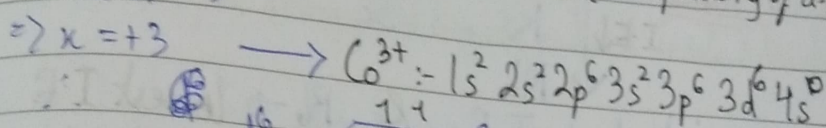 => x = +3 → Co³⁺ :- 1s² 2s² 2p⁶ 3s² 3p⁶ 3d⁶ 4s⁰